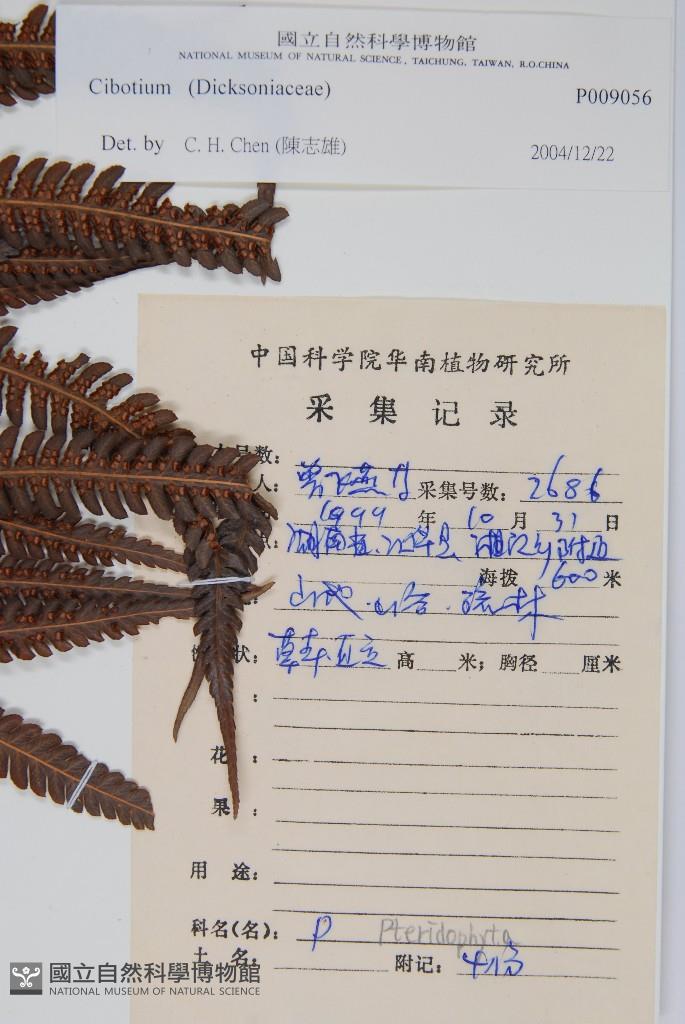 國立自然科學博物館
NATIONAL MUSEUM OF NATURAL SCIENCE, TAICHUNG, TAIWAN, R.O.CHINA
Cibotium (Dicksoniaceae)
P009056
Det. by C. H. Chen (陳志雄)
2004/12/22
中国科学院华南植物研究所
采集记录
号数:
人: 曾飞燕 采集号数: 2686
1999 年 10 月 31 日
湖南省 江华县
海拨 1600 米
山地 山谷 疏林
状: 草本 直立 高 米; 胸径 厘米
:
花 :
果 :
用 途:
科名(名): P Pteridophyta
土 名: 附记: 4份
國立自然科學博物館
NATIONAL MUSEUM OF NATURAL SCIENCE